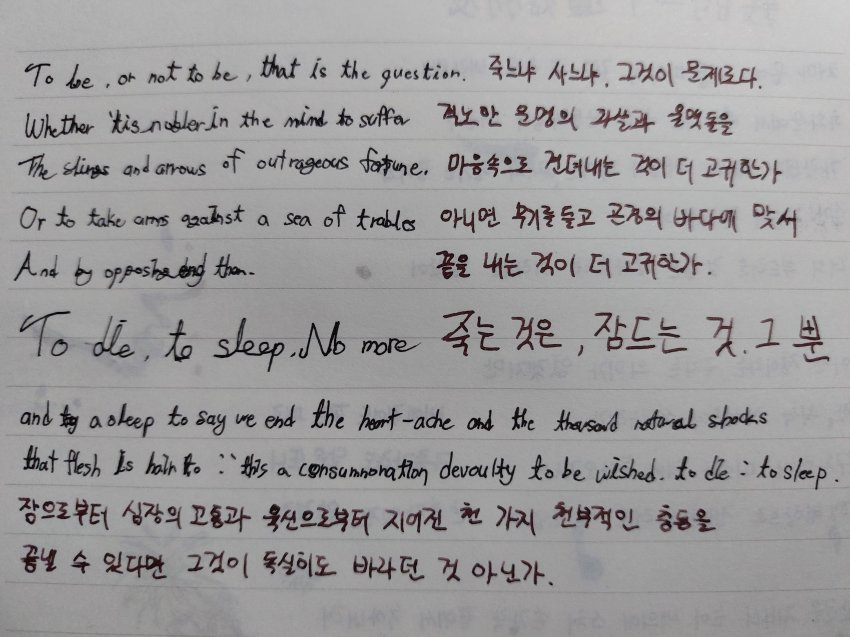 To be, or not to be, that is the question. 죽느냐 사느냐, 그것이 문제로다.
Whether 'tis nobler in the mind to suffer 격노한 운명의 화살과 돌멩이들을
The slings and arrows of outrageous fortune. 마음속으로 견뎌내는 것이 더 고귀한가
Or to take arms against a sea of trables 아니면 무기를 들고 곤경의 바다에 맞서
And by opposing end then. 끝을 내는 것이 더 고귀한가.
To die, to sleep, No more 죽는 것은, 잠드는 것. 그 뿐
and a sleep to say we end the heart-ache and the thousand natural shocks
that flesh is hair to : this a consummonation devoulty to be wished. to die : to sleep.
잠으로부터 심장의 고통과 육신으로부터 지어진 천 가지 천부적인 충동을
끝낼 수 있다면 그것이 독실히도 바라던 것 아닌가.